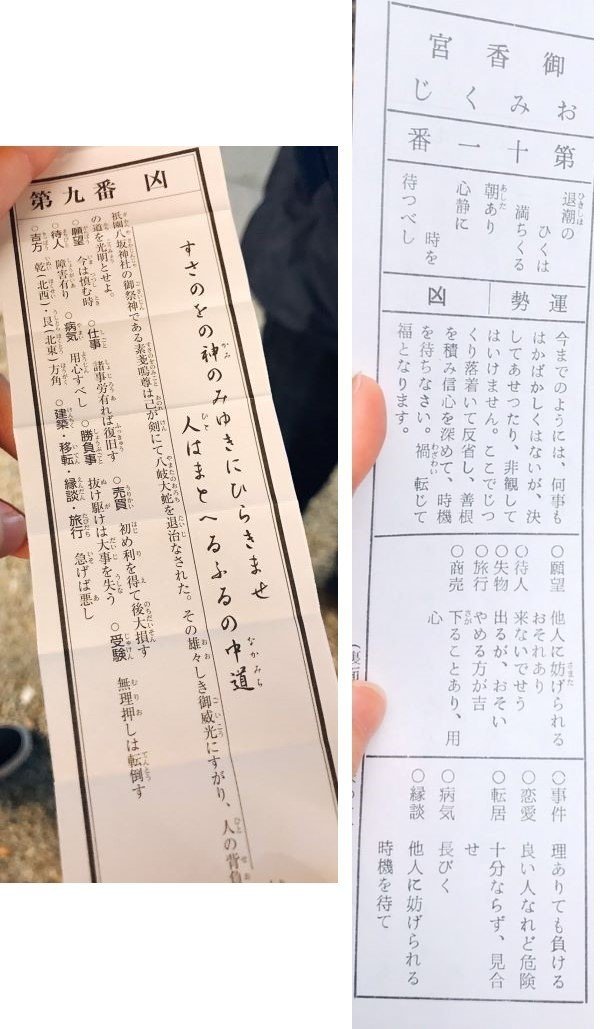 第九番 凶
すさのをの神のみゆきにひらきませ
人はまとへるふるの中道
祇園八坂神社の御祭神である素戔嗚尊は己が剣にて八岐大蛇を退治なされた。その雄々しき御威光にすがり、人の背負
の道を光明とせよ。
○願望 今は慎む時
○仕事 諸事労有れば復旧す
○売買 初め利を得て後大損す
○待人 障害有り
○病気 用心すべし
○勝負事 抜け駆けは大事を失う
○受験 無理押しは転倒す
○吉方 乾(北西)・艮(北東)方角
○建築・移転・縁談・旅行 急げば悪し
御香宮
おみくじ
第十一番
退潮の
ひくは
満ちくる
朝あり
心静に
時を
待つべし
運勢 凶
今までのようには、何事も
はかばかしくはないが、決
してあせつたり、非観して
はいけません。ここでじつ
くり落着いて反省し、善根
を積み信心を深めて、時機
を待ちなさい。禍転じて
福となります。
○願望 他人に妨げられる
おそれあり
○待人 来ないでせう
○失物 出るが、おそい
○旅行 やめる方が吉
○商売 下ることあり、用
心
○事件 理ありても負ける
○恋愛 良い人なれど危険
○転居 十分ならず、見合
せ
○病気 長びく
○縁談 他人に妨げられる
時機を待て